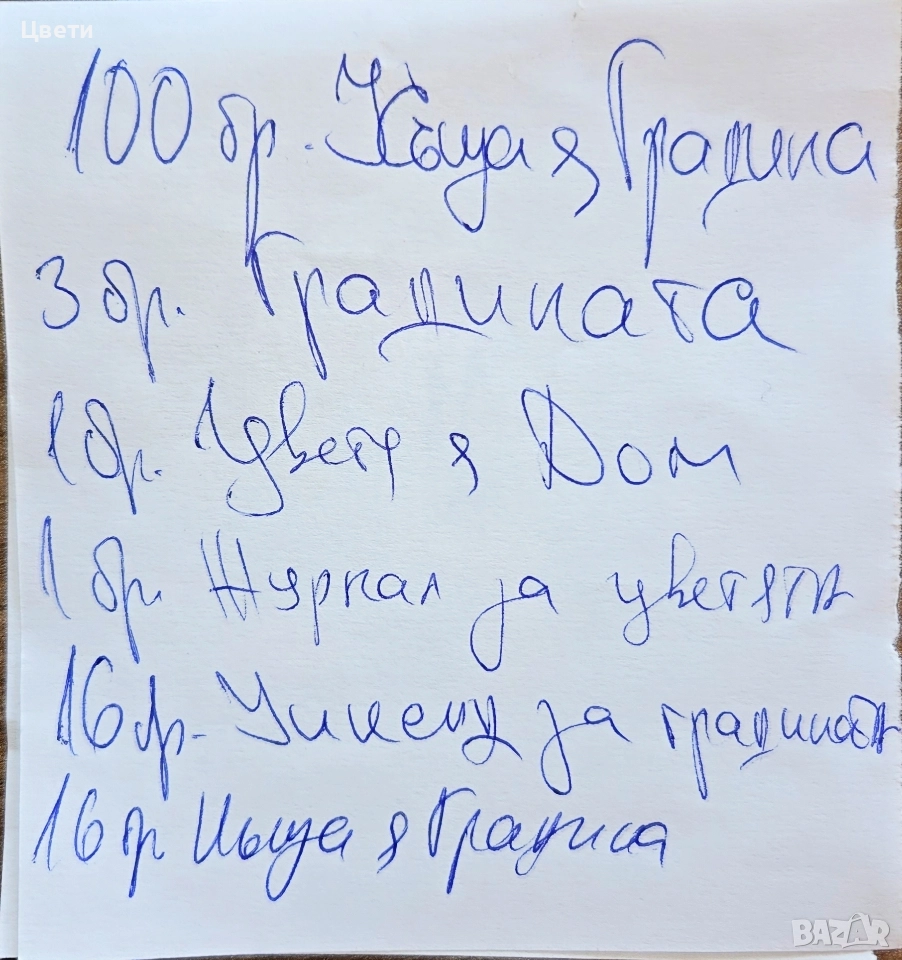 Цвети
100 бр. Къща & Градина
3 бр. Градината
1 бр. Цветя & Дом
1 бр. Журнал за цветята
16р. Уикенд за градината
16р Къща & Градина
BAZAR